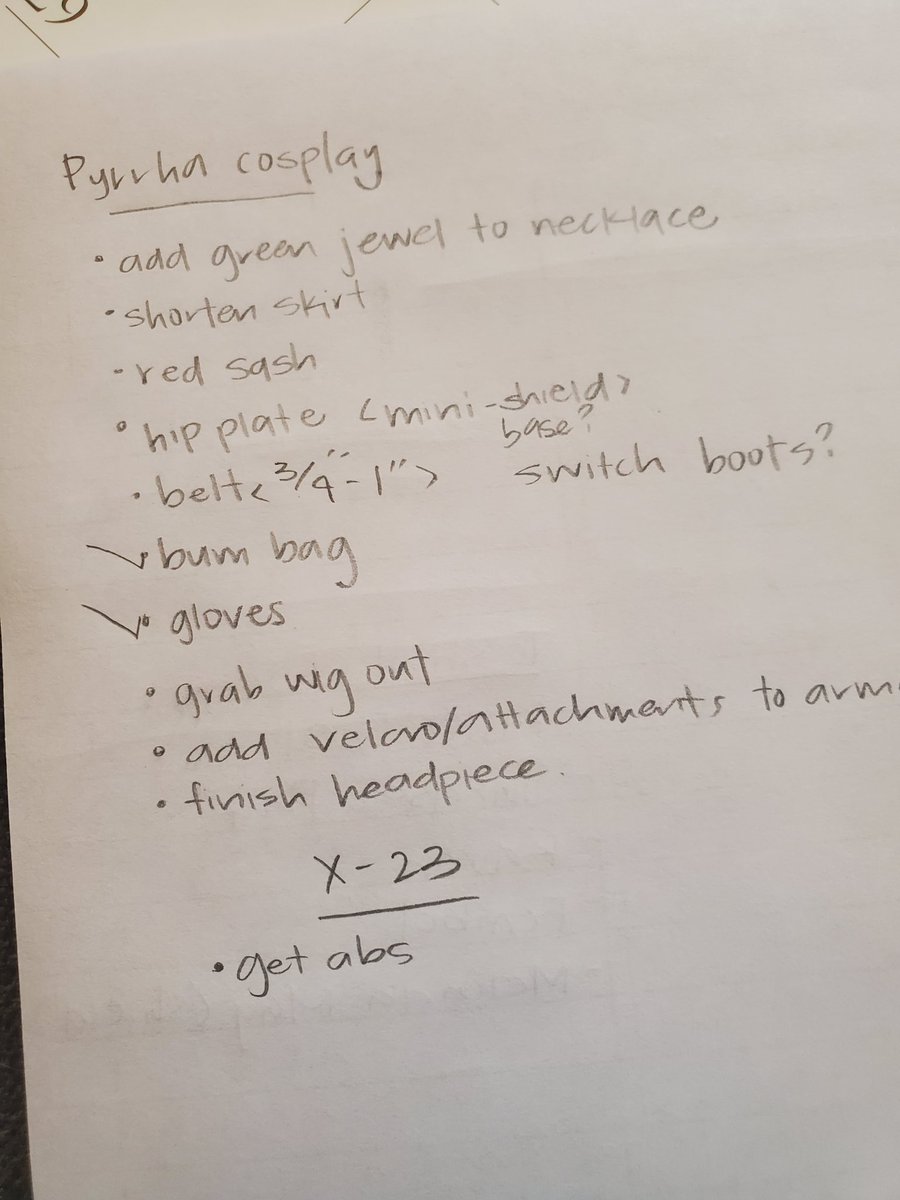 Pyrrha cosplay
• add green jewel to necklace
• shorten skirt
• red sash
• hip plate <mini-shield>
base?
• belt <3/4" - 1">
switch boots?
• bum bag
• gloves
• grab wig out
• add velcro/attachments to arm
• finish headpiece.
X-23
• get abs